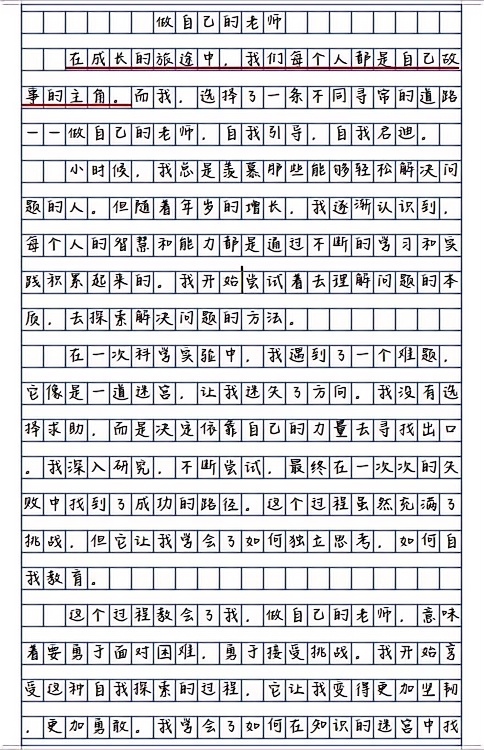 做自己的老师
在成长的旅途中，我们每个人都是自己故
事的主角。而我，选择了一条不同寻常的道路
——做自己的老师，自我引导，自我启迪。
小时候，我总是羡慕那些能够轻松解决问
题的人。但随着年岁的增长，我逐渐认识到，
每个人的智慧和能力都是通过不断的学习和实
践积累起来的。我开始尝试着去理解问题的本
质，去探索解决问题的方法。
在一次科学实验中，我遇到了一个难题，
它像是一道迷宫，让我迷失了方向。我没有选
择求助，而是决定依靠自己的力量去寻找出口
。我深入研究，不断尝试，最终在一次次的失
败中找到了成功的路径。这个过程虽然充满了
挑战，但它让我学会了如何独立思考，如何自
我教育。
这个过程教会了我，做自己的老师，意味
着要勇于面对困难，勇于接受挑战。我开始享
受这种自我探索的过程，它让我变得更加坚韧
，更加勇敢。我学会了如何在知识的迷宫中找